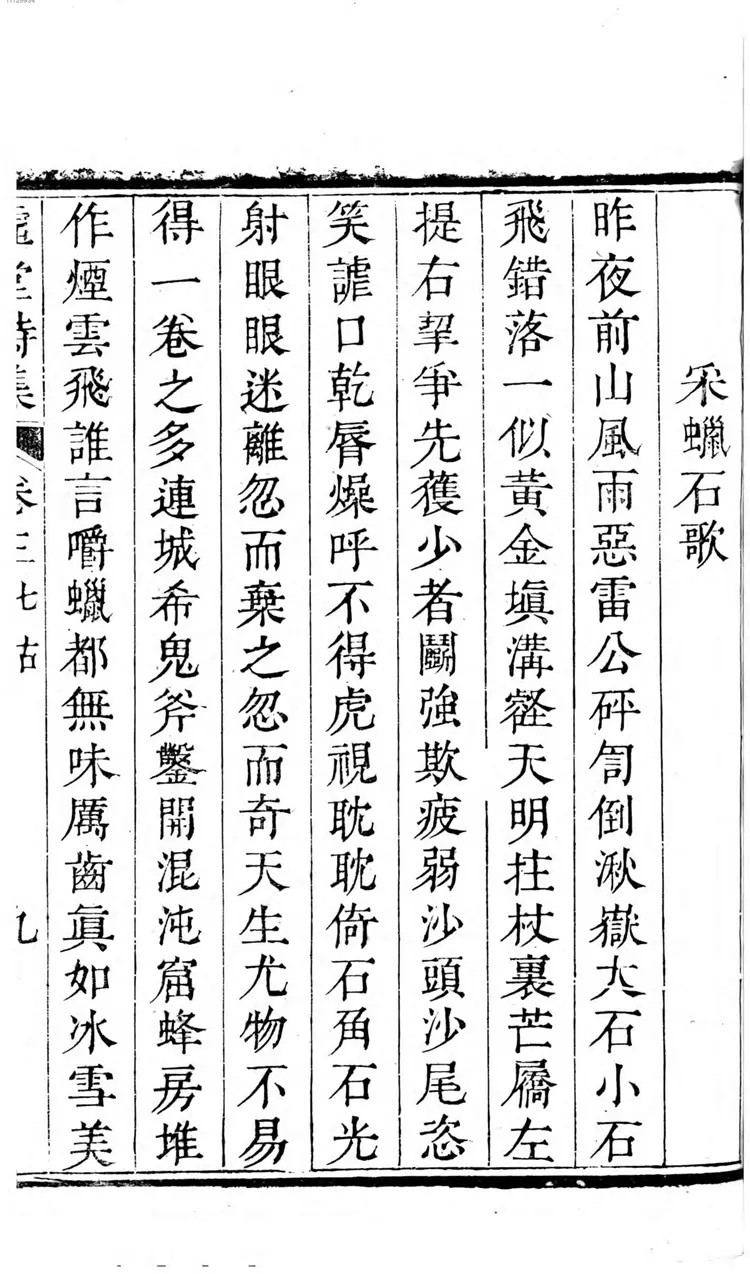 采蠟石歌
昨夜前山風雨惡雷公砰訇倒湫嶽大石小石
飛錯落一似黃金塡溝壑天明拄杖裹芒屩左
提右挈爭先獲少者鬭強欺疲弱沙頭沙尾恣
笑謔口乾脣燥呼不得虎視耽耽倚石角石光
射眼眼迷離忽而棄之忽而奇天生尤物不易
得一卷之多連城希鬼斧鑿開混沌窟蜂房堆
作煙雲飛誰言嚼蠟都無味厲齒眞如冰雪美
堂詩集 卷三七古 九